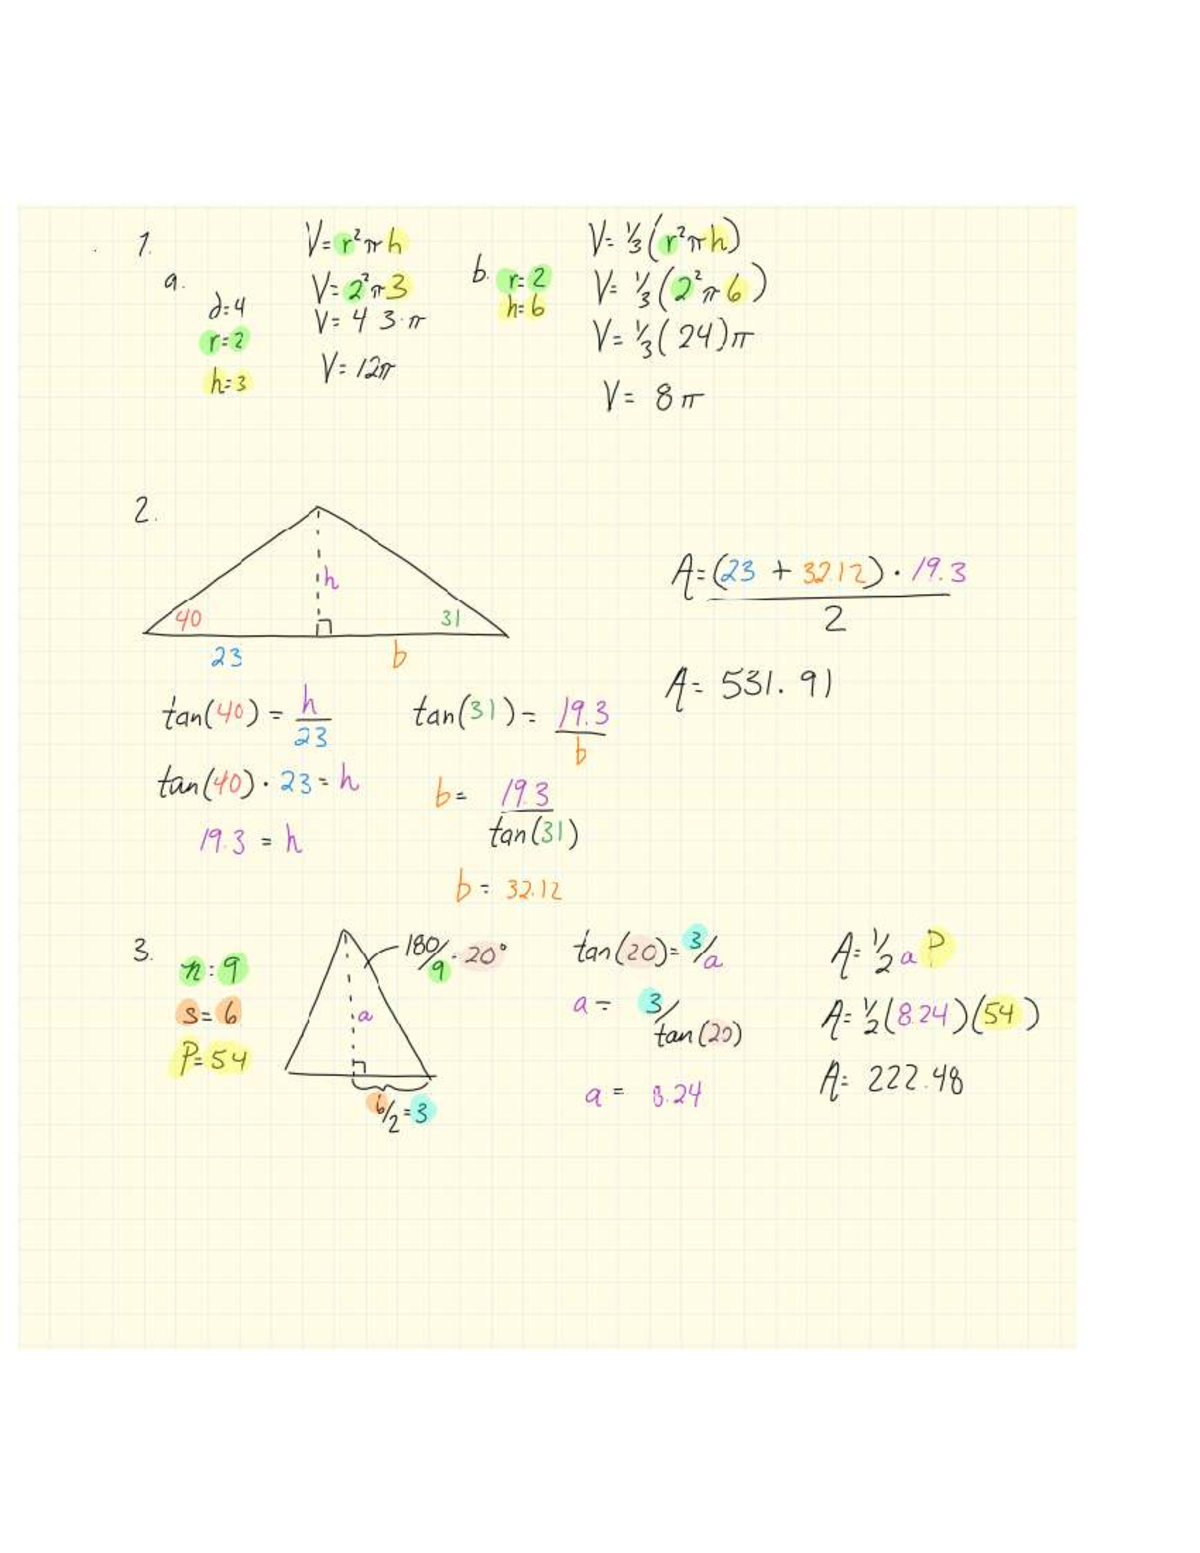 1.
a.
d=4
r=2
h=3
V=r²πh
V=2²π3
V=4 3·π
V=12π
b.
r=2
h=6
V=⅓(r²πh)
V=⅓(2²π6)
V=⅓(24)π
V=8π
2.
h
40
31
23
b
tan(40)=h/23
tan(40)·23=h
19.3=h
tan(31)=19.3/b
b=19.3/tan(31)
b=32.12
A=(23+32.12)·19.3/2
A=531.91
3.
n:9
s=6
P=54
180/9=20°
a
6/2=3
tan(20)=3/a
a=3/tan(20)
a=8.24
A=½aP
A=½(8.24)(54)
A=222.48